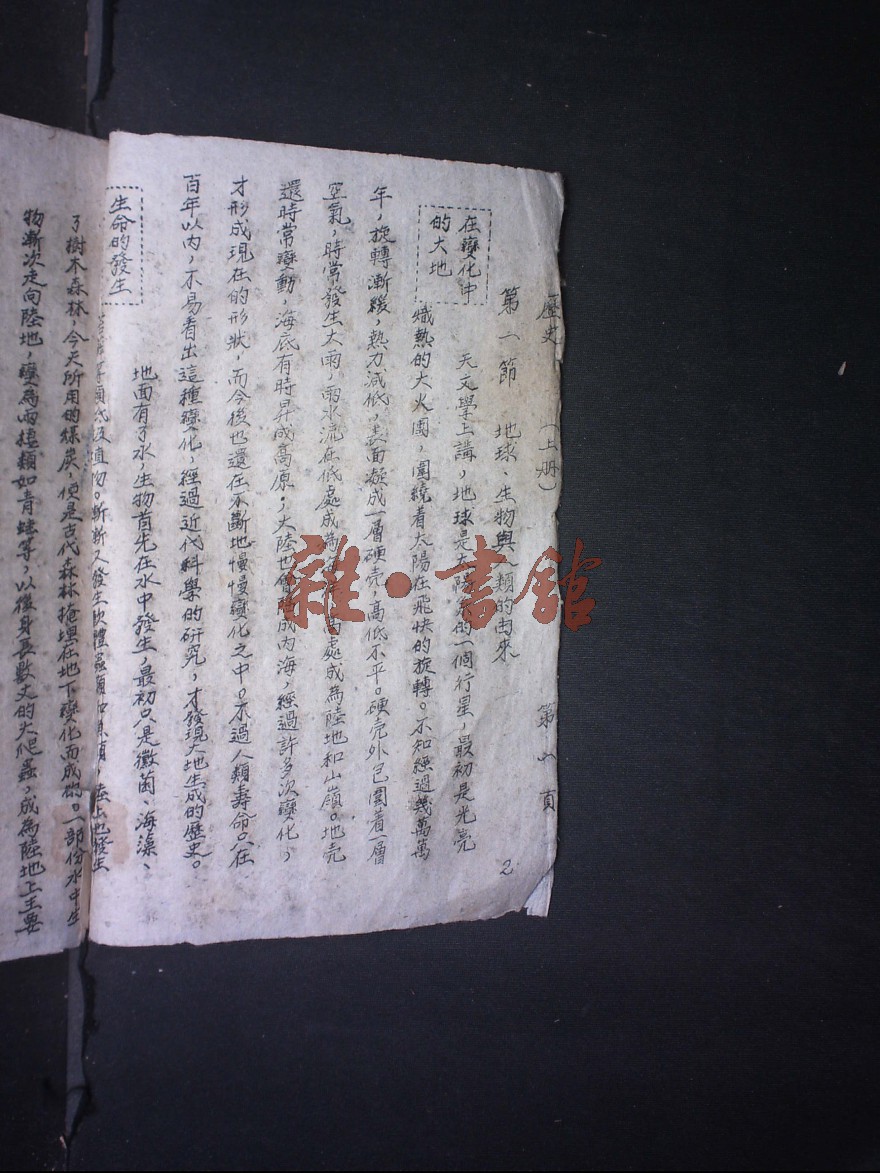 歷史 （上册） 第 頁
第一節 地球 生物與人類的由來
在變化中
的大地
天文學上講，地球是太陽系的一個行星，最初是光亮
熾熱的大火團，圍繞着太陽在飛快的旋轉。不知經過幾萬萬
年，旋轉漸緩，熱力減低，表面凝成一層硬壳，高低不平。硬壳外包圍着一層
空氣，時常發生大雨，雨水流在低處成為 高處成為陸地和山嶺。地壳
還時常變動，海底有時昇成高原；大陸也會 成內海，經過許多次變化，
才形成現在的形狀，而今後也還在不斷地慢慢變化之中。不過人類壽命只在
百年以内，不易看出這種變化，經過近代科學的研究，才發現大地生成的歷史。
生命的發生
地面有了水，生物首先在水中發生，最初只是黴菌、海藻、
苔蘚等類低級植物。漸漸又發生軟體蟲類和魚類，陸上也發生
了樹木森林，今天所用的煤炭，便是古代森林掩埋在地下變化而成的。一部份水中生
物漸次走向陸地，變為兩棲類如青蛙等，以後身長數丈的大爬蟲，成為陸地上主要
2
雜·書館